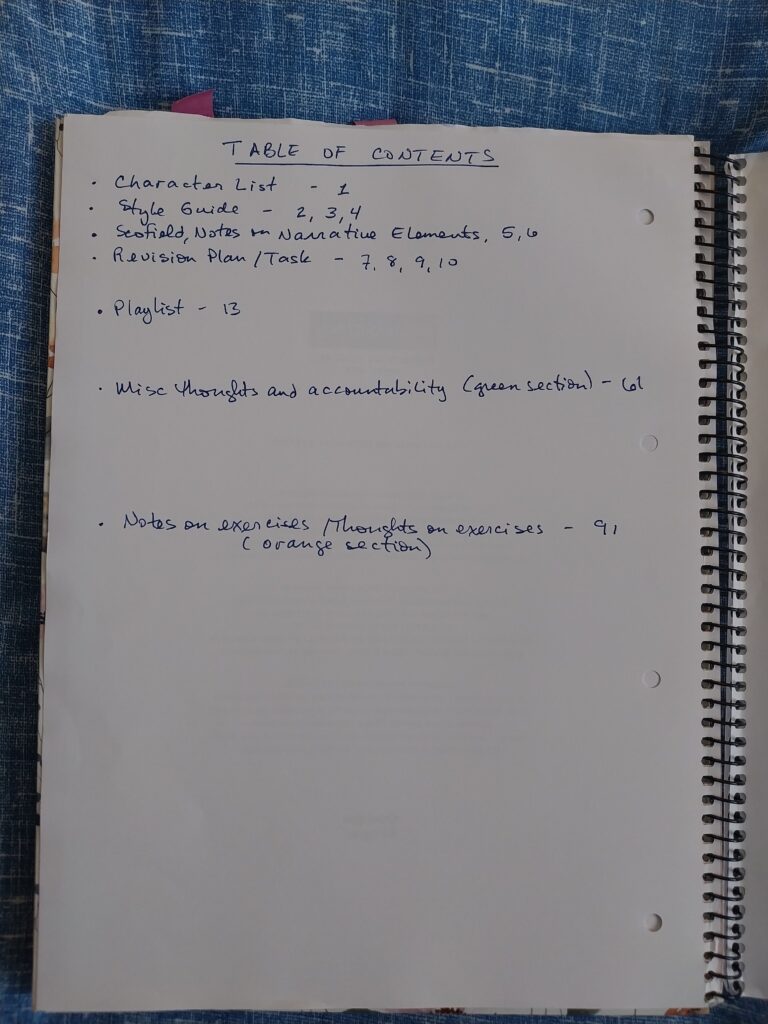 TABLE OF CONTENTS
• Character List - 1
• Style Guide - 2, 3, 4
• Scofield, Notes on Narrative Elements, 5, 6
• Revision Plan / Task - 7, 8, 9, 10
• Playlist - 13
• Misc thoughts and accountability (green section) - 61
• Notes on exercises / Thoughts on exercises - 91
(orange section)